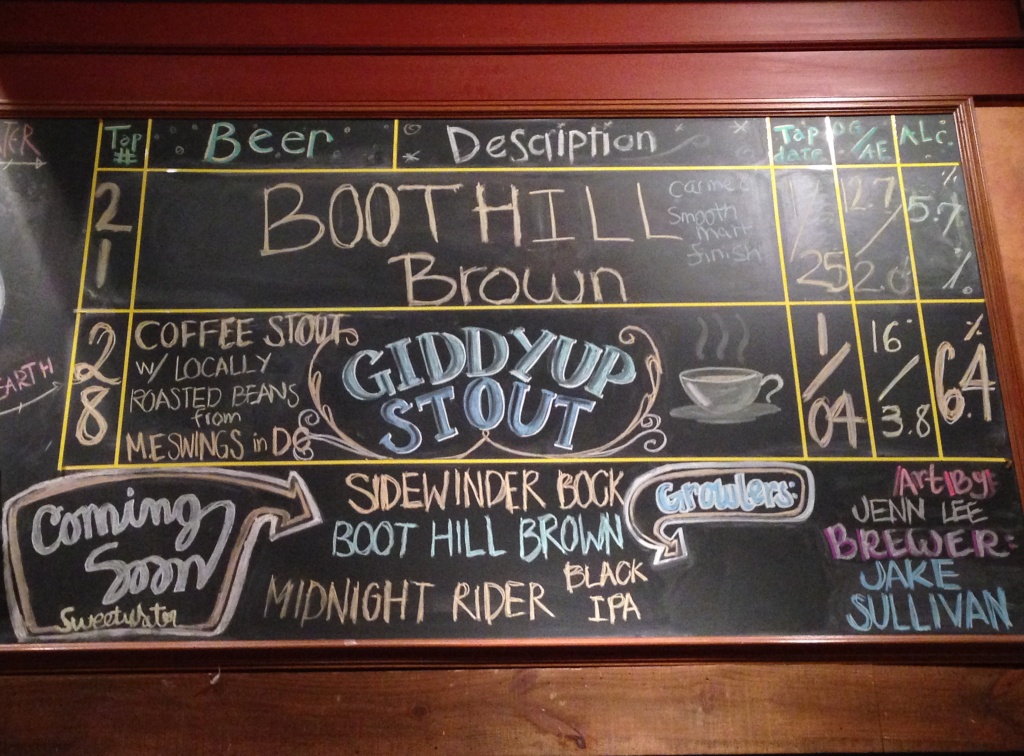 TER
Tap # Beer Description Tap date OG/ AE ALC.
21 BOOT HILL Brown
Smooth
Malt
finish
25 12.7/2.0 5.7%
EARTH
28 COFFEE STOUT
W/ LOCALLY
ROASTED BEANS
from
M.E SWINGS in DC
GIDDYUP
STOUT
1/04 16/3.8 6.4%
Coming
Soon
Sweetwater
SIDEWINDER BOCK
BOOT HILL BROWN
MIDNIGHT RIDER BLACK IPA
Growlers:
Art By:
JENN LEE
BREWER:
JAKE
SULLIVAN